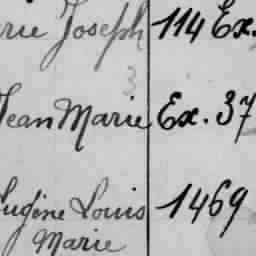 rie Joseph 114 Ex.
3
Jean Marie Ex. 37
Eugène Louis 1469
Marie